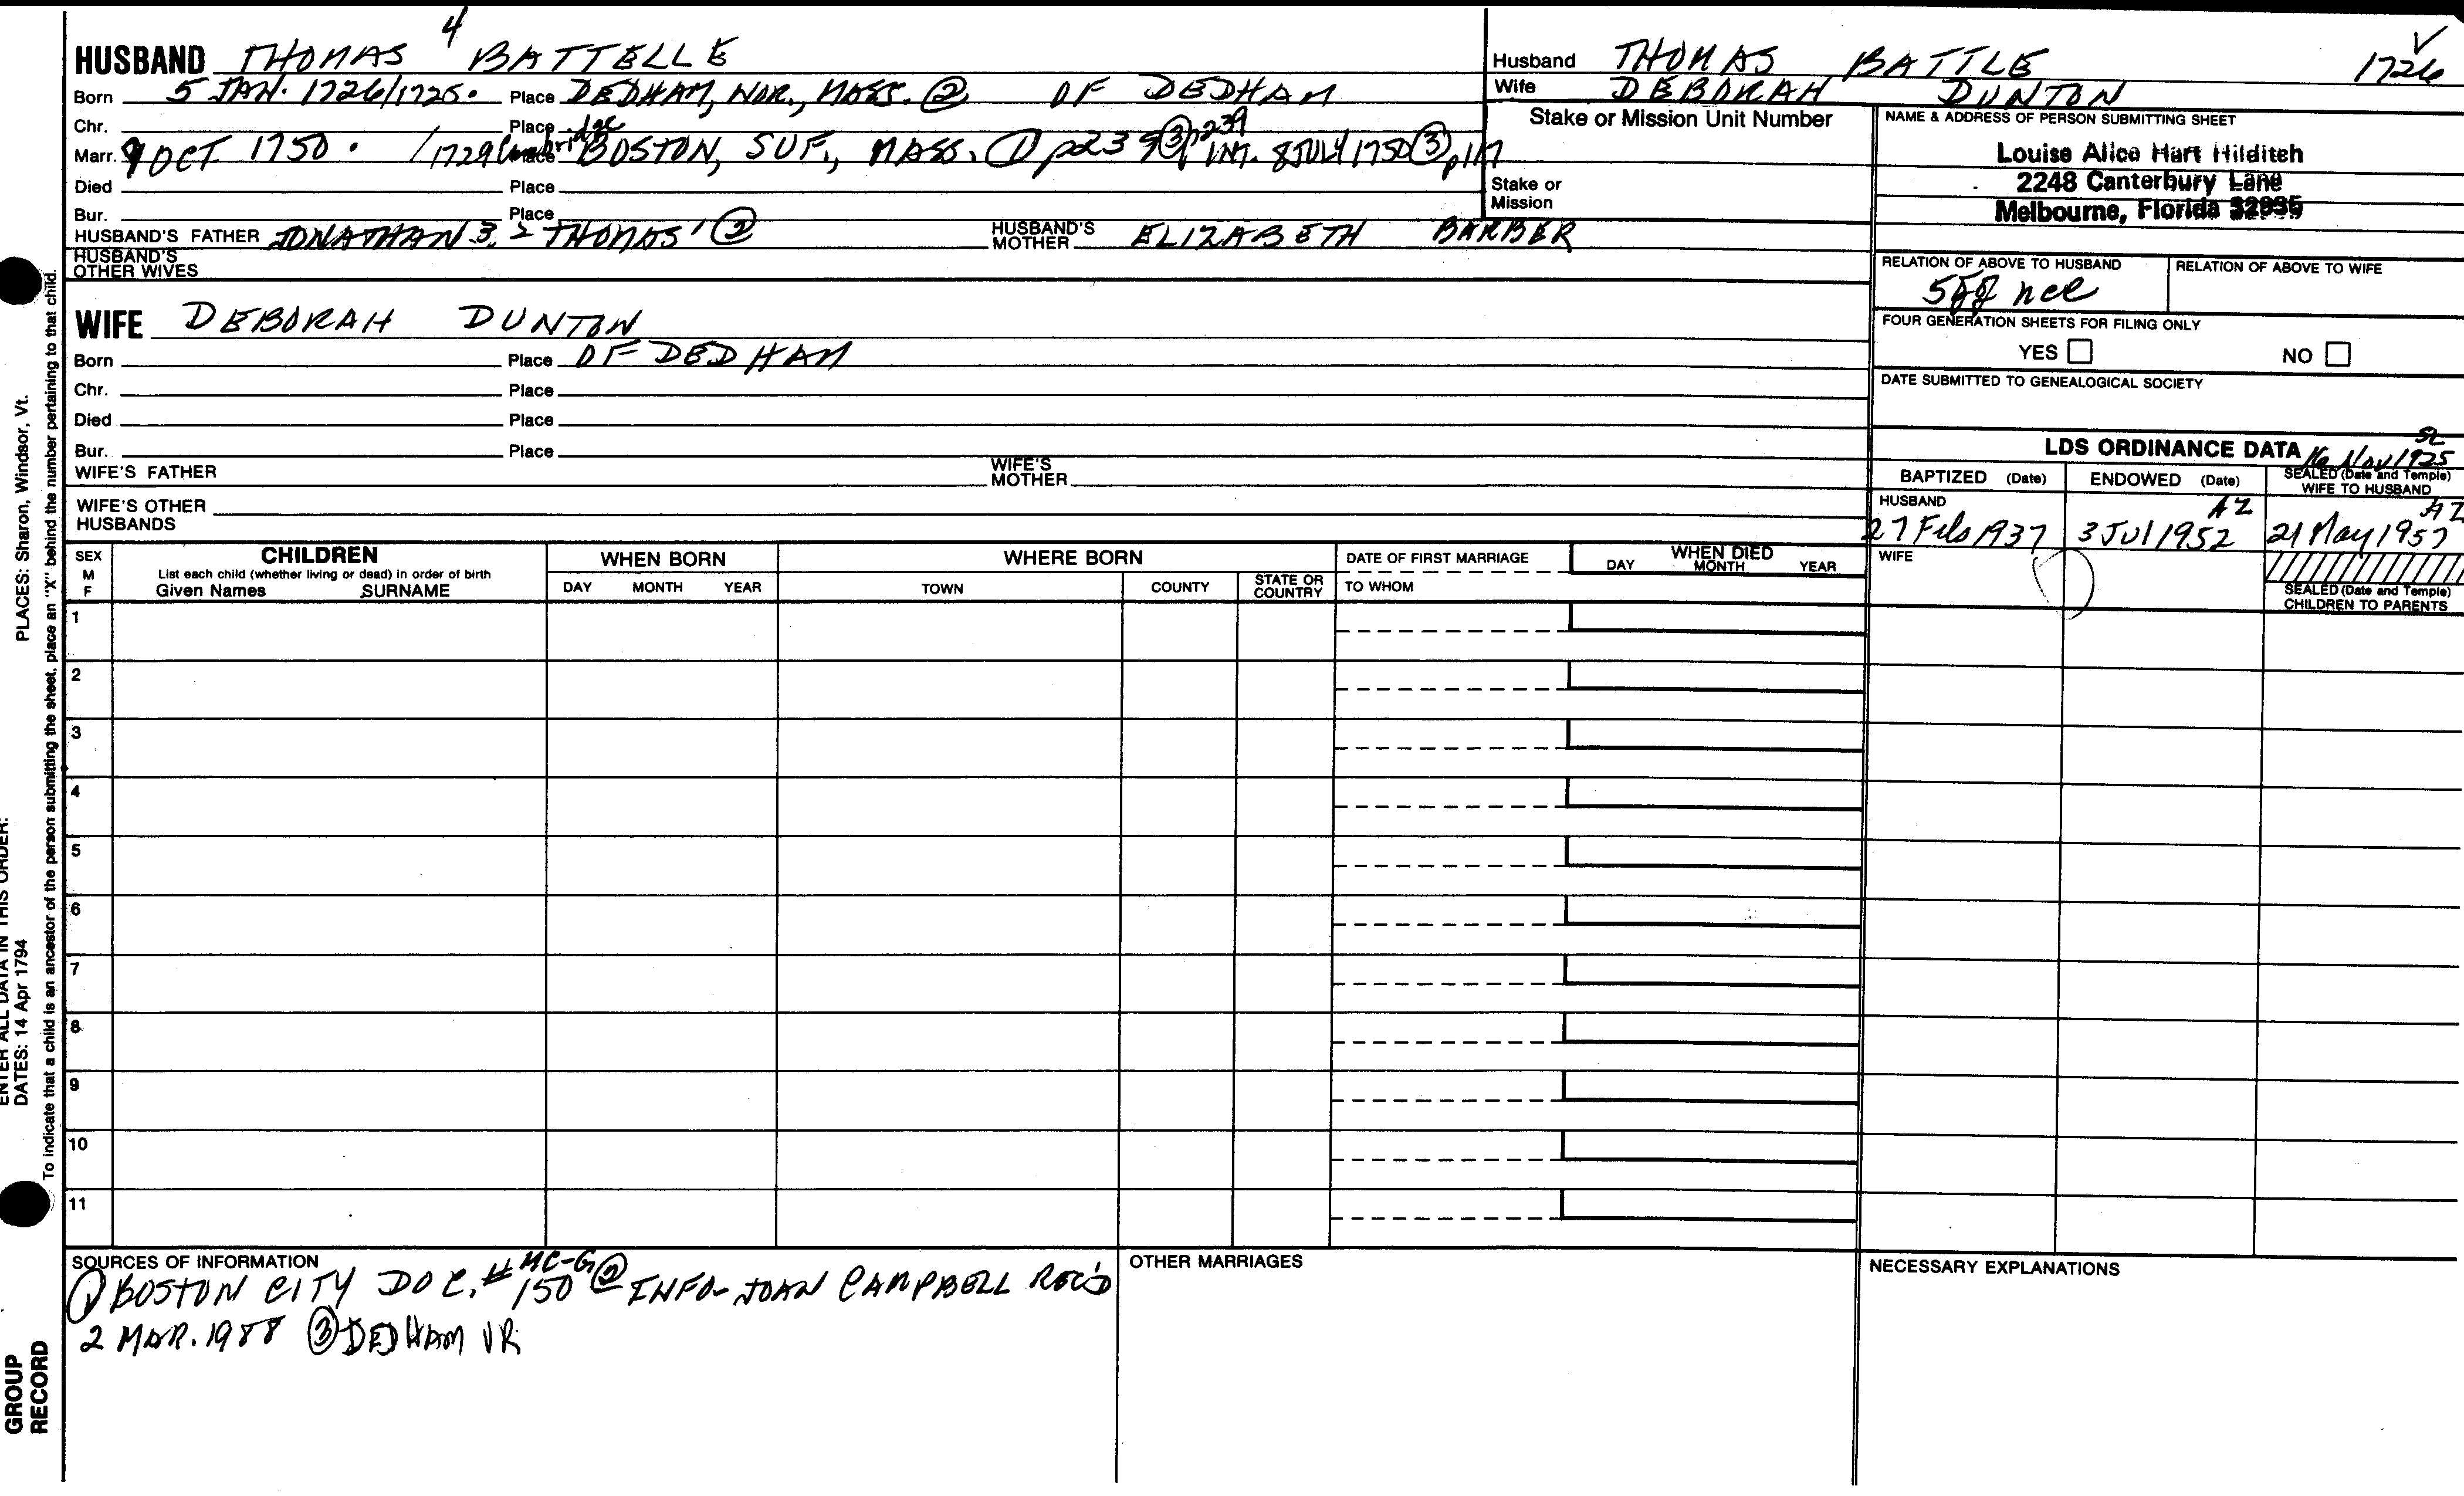 HUSBAND THOMAS 4 BATTELLE
Born 5 JAN. 1726/1725. Place DEDHAM, NOR., MASS. ② OF DEDHAM
Chr. Place
Marr. 9 OCT 1750. /1729 Cambridge Place BOSTON, SUF., MASS. ① p239 ③ p239 INT. 8 JULY 1750 ③ p117
Died Place
Bur. Place
HUSBAND'S FATHER JONATHAN 3, 2 THOMAS 1 ② HUSBAND'S MOTHER ELIZABETH BARBER
HUSBAND'S OTHER WIVES
WIFE DEBORAH DUNTON
Born Place OF DEDHAM
Chr. Place
Died Place
Bur. Place
WIFE'S FATHER WIFE'S MOTHER
WIFE'S OTHER HUSBANDS
Husband THOMAS BATTLE 1726
Wife DEBORAH DUNTON
Stake or Mission Unit Number
Stake or Mission
NAME & ADDRESS OF PERSON SUBMITTING SHEET
Louise Alice Hart Hilditch
2248 Canterbury Lane
Melbourne, Florida 32935
RELATION OF ABOVE TO HUSBAND RELATION OF ABOVE TO WIFE
5gg nce
FOUR GENERATION SHEETS FOR FILING ONLY
YES NO
DATE SUBMITTED TO GENEALOGICAL SOCIETY
LDS ORDINANCE DATA 16 Nov 1925 SL
BAPTIZED (Date) ENDOWED (Date) SEALED (Date and Temple) WIFE TO HUSBAND
HUSBAND AZ AZ
27 Feb 1937 3 Jul 1952 21 May 1957
WIFE
SEALED (Date and Temple)
CHILDREN TO PARENTS
SEX M F CHILDREN WHEN BORN WHERE BORN DATE OF FIRST MARRIAGE WHEN DIED
List each child (whether living or dead) in order of birth
Given Names SURNAME DAY MONTH YEAR TOWN COUNTY STATE OR COUNTRY TO WHOM DAY MONTH YEAR
1
2
3
4
5
6
7
8
9
10
11
SOURCES OF INFORMATION
① BOSTON CITY DOC. # MC-G 150 ② INFO- JOAN CAMPBELL REC'D
2 MAR. 1988 ③ DEDHAM VR
OTHER MARRIAGES
NECESSARY EXPLANATIONS
PLACES: Sharon, Windsor, Vt.
ENTER ALL DATA IN THIS ORDER:
DATES: 14 Apr 1794
To indicate that a child is an ancestor of the person submitting the sheet, place an "X" behind the number pertaining to that child.
GROUP
RECORD